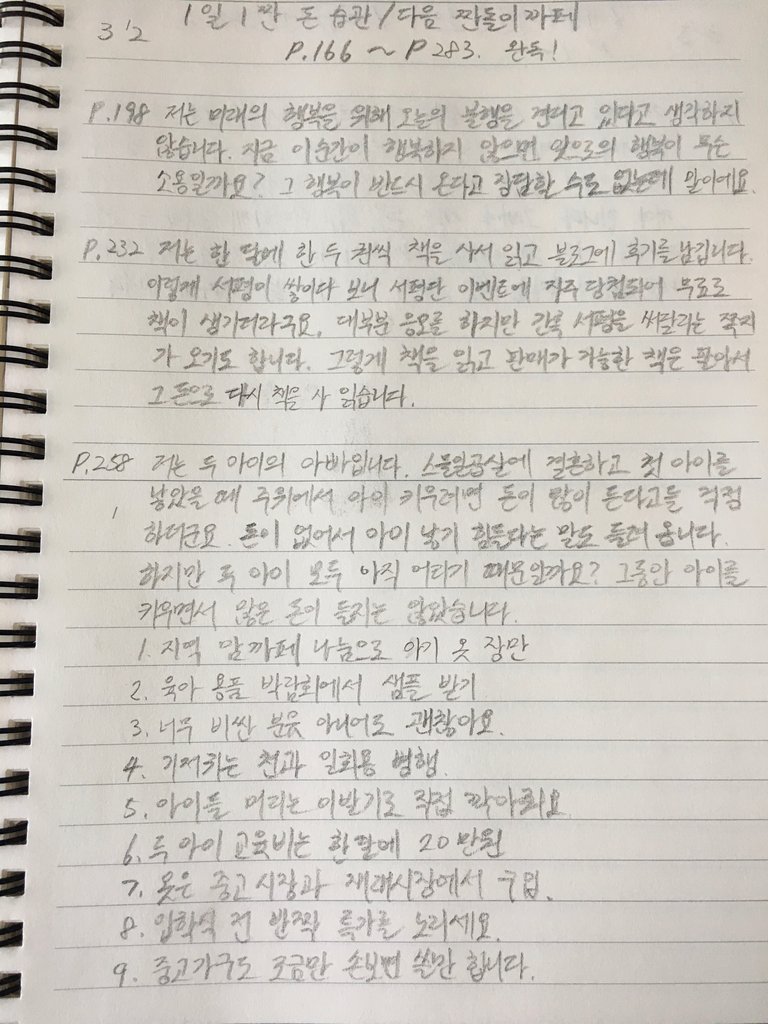 3/2 1일 1짠 돈 습관 / 다음 짠돌이 까페
P.166 ~ P 283. 완독!
P.198 저는 미래의 행복을 위해 오늘의 불행을 견디고 있다고 생각하지
않습니다. 지금 이순간이 행복하지 않으면 앞으로의 행복이 무슨
소용일까요? 그 행복이 반드시 온다고 장담할 수도 없는데 말이에요.
P.232 저는 한 달에 한 두 권씩 책을 사서 읽고 블로그에 후기를 남깁니다.
이렇게 서평이 쌓이다 보니 서평단 이벤트에 자주 당첨되어 무료로
책이 생기더라구요. 대부분 응모를 하지만 간혹 서평을 써달라는 쪽지
가 오기도 합니다. 그렇게 책을 읽고 판매가 가능한 책은 팔아서
그 돈으로 다시 책을 사 읽습니다.
P.258 저는 두 아이의 아빠입니다. 스물일곱살에 결혼하고 첫 아이를
낳았을 때 주위에서 아이 키우려면 돈이 많이 든다고들 걱정
하더군요. 돈이 없어서 아이 낳기 힘들다는 말도 들려 옵니다.
하지만 두 아이 모두 아직 어리기 때문일까요? 그동안 아이를
키우면서 많은 돈이 들지는 않았습니다.
1. 지역 맘까페 나눔으로 아기 옷 장만
2. 육아 용품 박람회에서 샘플 받기
3. 너무 비싼 분윳 아니어도 괜찮아요.
4. 기저귀는 천과 일회용 병행.
5. 아이들 머리는 이발기로 직접 깎아줘요
6. 두 아이 교육비는 한달에 20만원
7. 옷은 중고시장과 재래시장에서 구입.
8. 입학식 전 반짝 특가를 노리세요.
9. 중고가구도 조금만 손보면 쓸만 합니다.